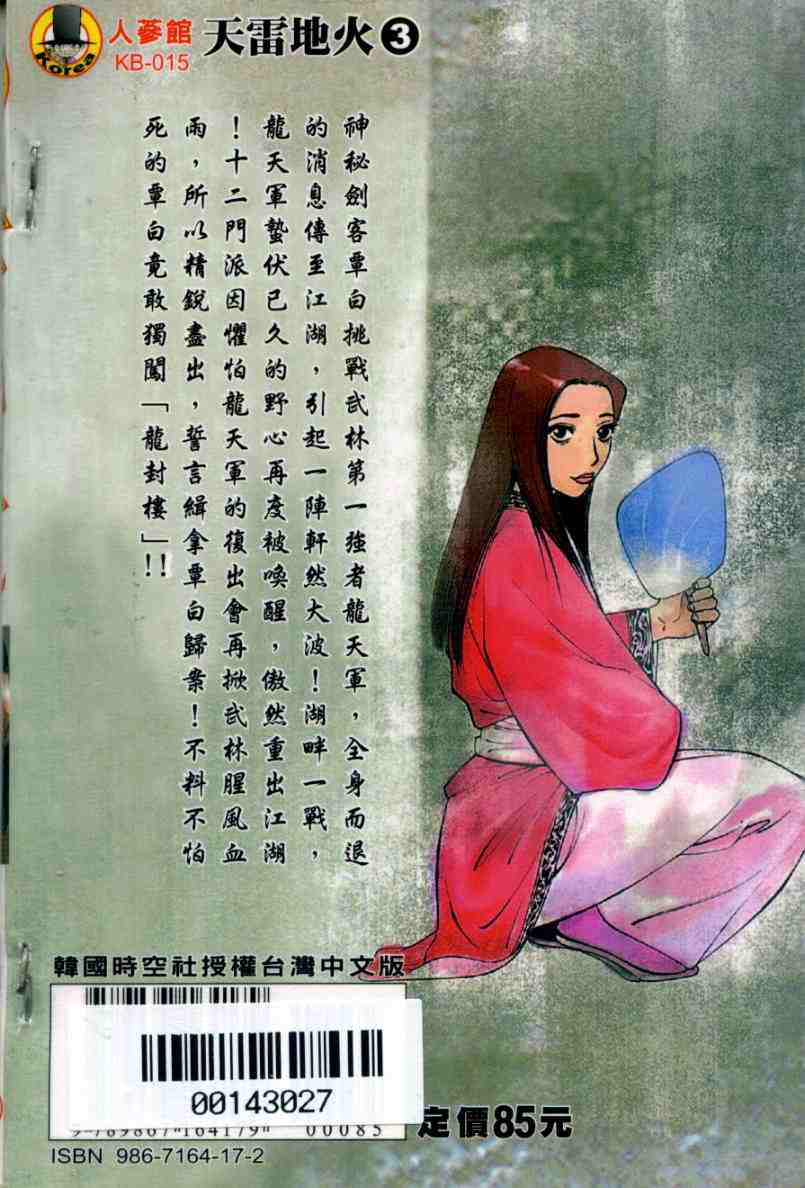 Korea
人蔘館
KB-015
天雷地火3
神秘劍客覃白挑戰武林第一強者龍天軍，全身而退
的消息傳至江湖，引起一陣軒然大波！湖畔一戰，
龍天軍蟄伏已久的野心再度被喚醒，傲然重出江湖
！十二門派因懼怕龍天軍的復出會再掀武林腥風血
雨，所以精銳盡出，誓言緝拿覃白歸案！不料不怕
死的覃白竟敢獨闖「龍封樓」!!
韓國時空社授權台灣中文版
00143027
9 789867 164179 00085
ISBN 986-7164-17-2
定價85元